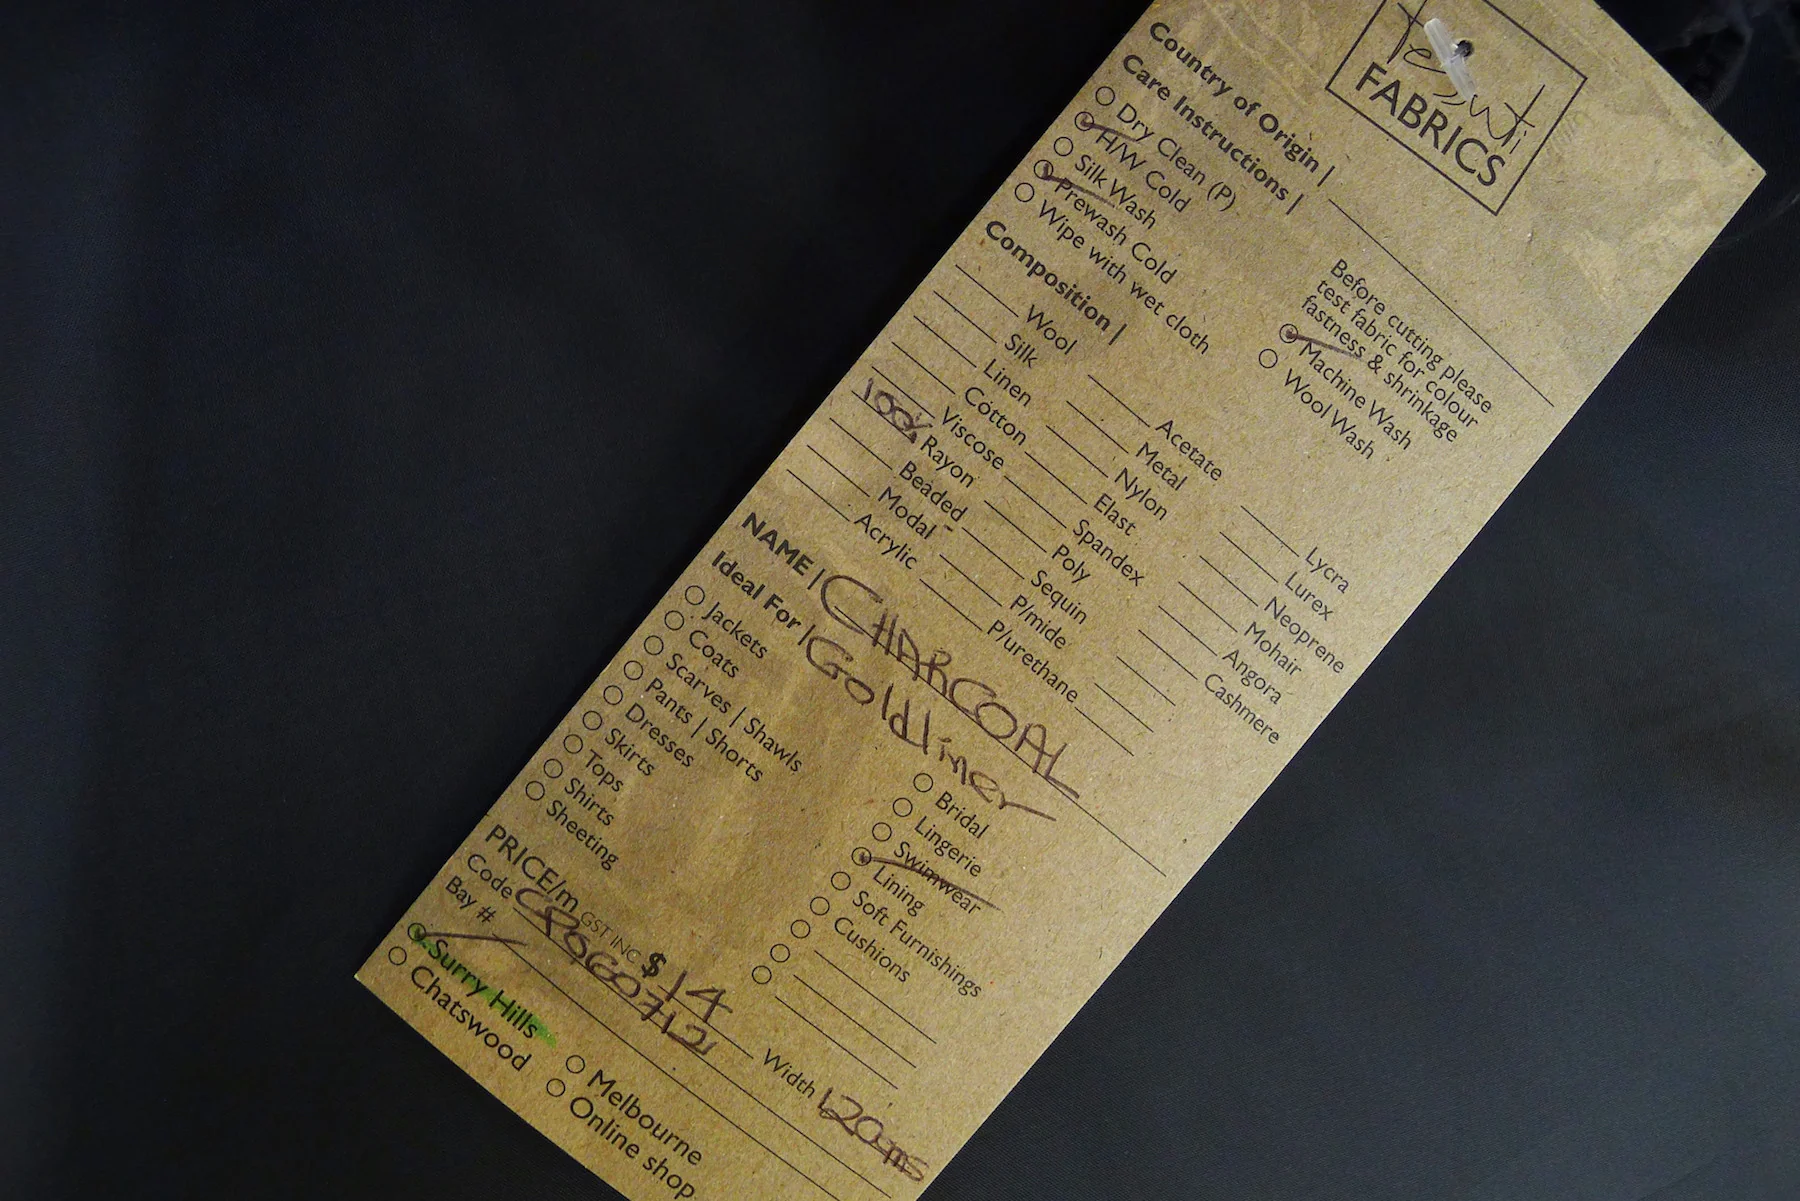 FABRICS
Country of Origin |
Care Instructions |
Dry Clean (P)
H/W Cold
Silk Wash
Prewash Cold
Wipe with wet cloth
Before cutting please
test fabric for colour
fastness & shrinkage
Machine Wash
Wool Wash
Composition |
Wool
Silk
Linen
Cotton
Viscose
100% Rayon
Beaded
Modal
Acrylic
Acetate
Metal
Nylon
Elast
Spandex
Poly
Sequin
P/mide
P/urethane
Lycra
Lurex
Neoprene
Mohair
Angora
Cashmere
NAME | CHARCOAL
Goldliner
Ideal For |
Jackets
Coats
Scarves | Shawls
Pants | Shorts
Dresses
Skirts
Tops
Shirts
Sheeting
Bridal
Lingerie
Swimwear
Lining
Soft Furnishings
Cushions
PRICE/m GST INC $ 14
Width 1.20ms
Code
Bay #
Surry Hills
Chatswood
Melbourne
Online shop